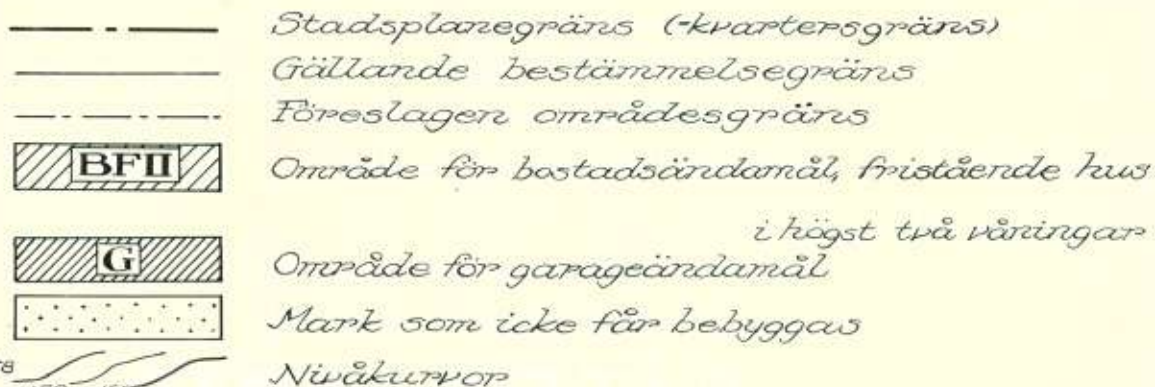 Stadsplanegräns (-kvartersgräns)
Gällande bestämmelsegräns
Föreslagen områdesgräns
BFII Område för bostadsändamål, fristående hus
i högst två våningar
G Område för garageändamål
Mark som icke får bebyggas
Nivåkurvor